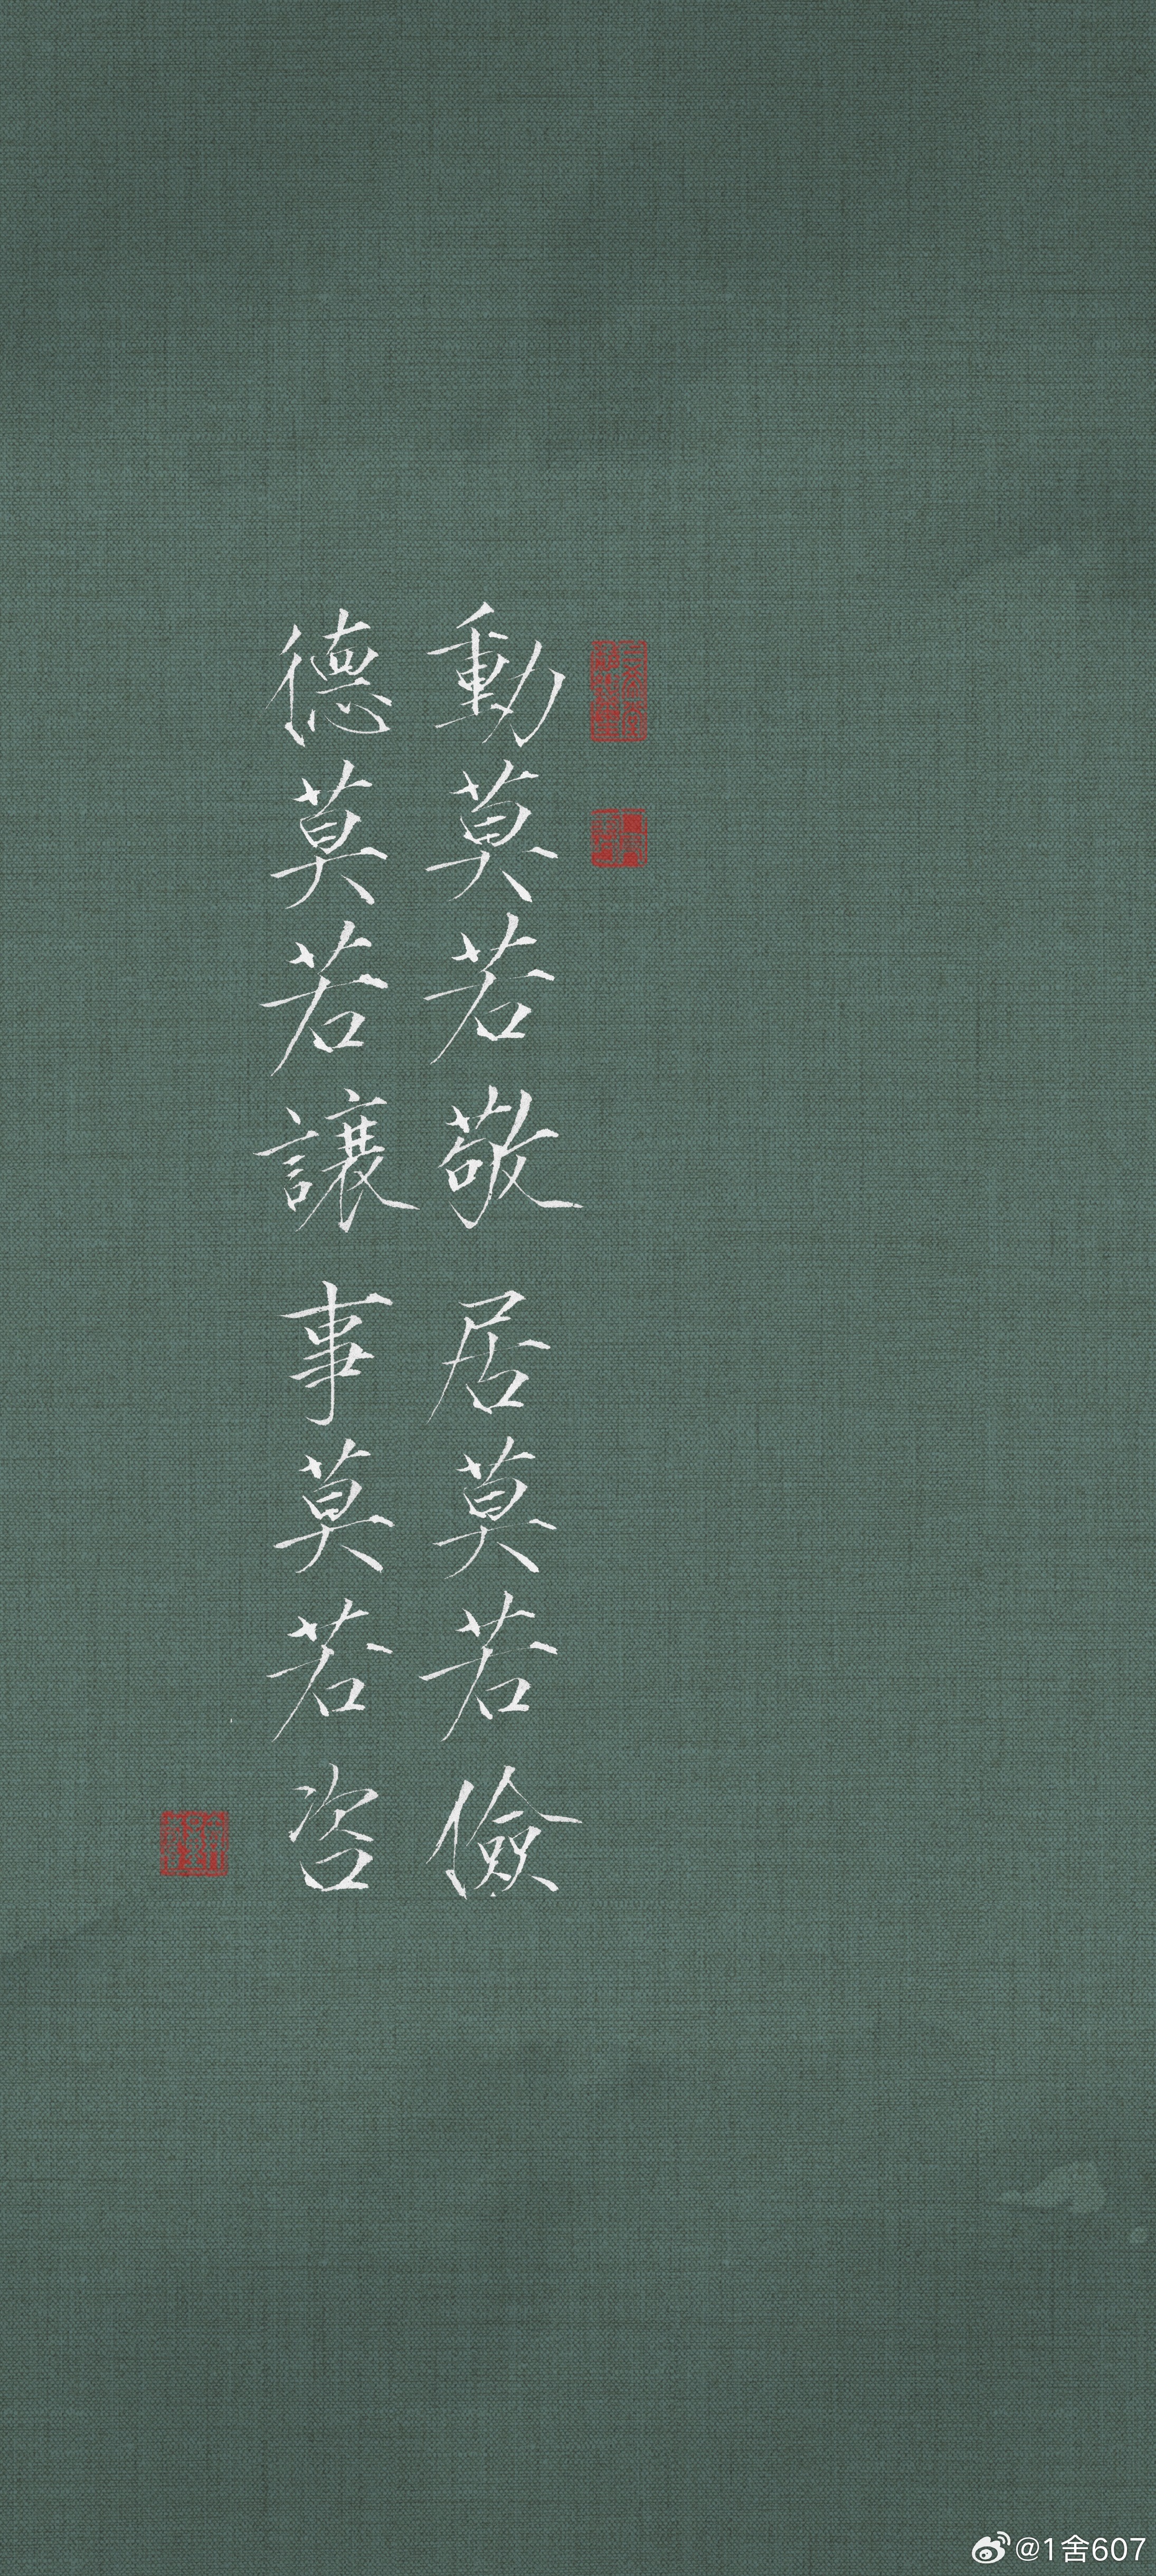 動莫若敬 居莫若儉
德莫若讓 事莫若咨
@1舍607